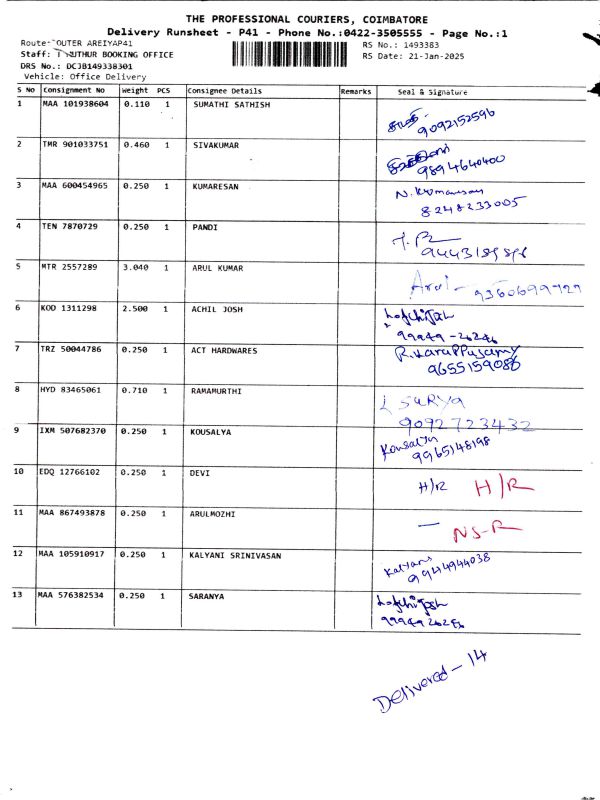 THE PROFESSIONAL COURIERS, COIMBATORE
Delivery Runsheet - P41 - Phone No.:0422-3505555 - Page No.:1
Route: OUTER AREIYAP41
RS No.: 1493383
Staff: UTHUR BOOKING OFFICE
RS Date: 21-Jan-2025
DRS No.: DCJB149338301
Vehicle: Office Delivery
S No Consignment No Weight PCS Consignee Details Remarks Seal & Signature
1 MAA 101938604 0.110 1 SUMATHI SATHISH
9092152596
2 TMR 901033751 0.460 1 SIVAKUMAR
9894640400
3 MAA 600454965 0.250 1 KUMARESAN N. Kumaresan
8248233005
4 TEN 7870729 0.250 1 PANDI
5 MTR 2557289 3.040 1 ARUL KUMAR Arul - 9360699727
6 KOD 1311298 2.500 1 ACHIL JOSH
99949-26246
7 TRZ 50044786 0.250 1 ACT HARDWARES R.Karuppusamy
9655159086
8 HYD 83465061 0.710 1 RAMAMURTHI SURYA
9092723432
9 IXM 507682370 0.250 1 KOUSALYA Kousalya
9965148198
10 EDQ 12766102 0.250 1 DEVI H/R H/R
11 MAA 867493878 0.250 1 ARULMOZHI — NS-R
12 MAA 105910917 0.250 1 KALYANI SRINIVASAN Kalyani
9944944038
13 MAA 576382534 0.250 1 SARANYA
9994926246
Delivered - 14